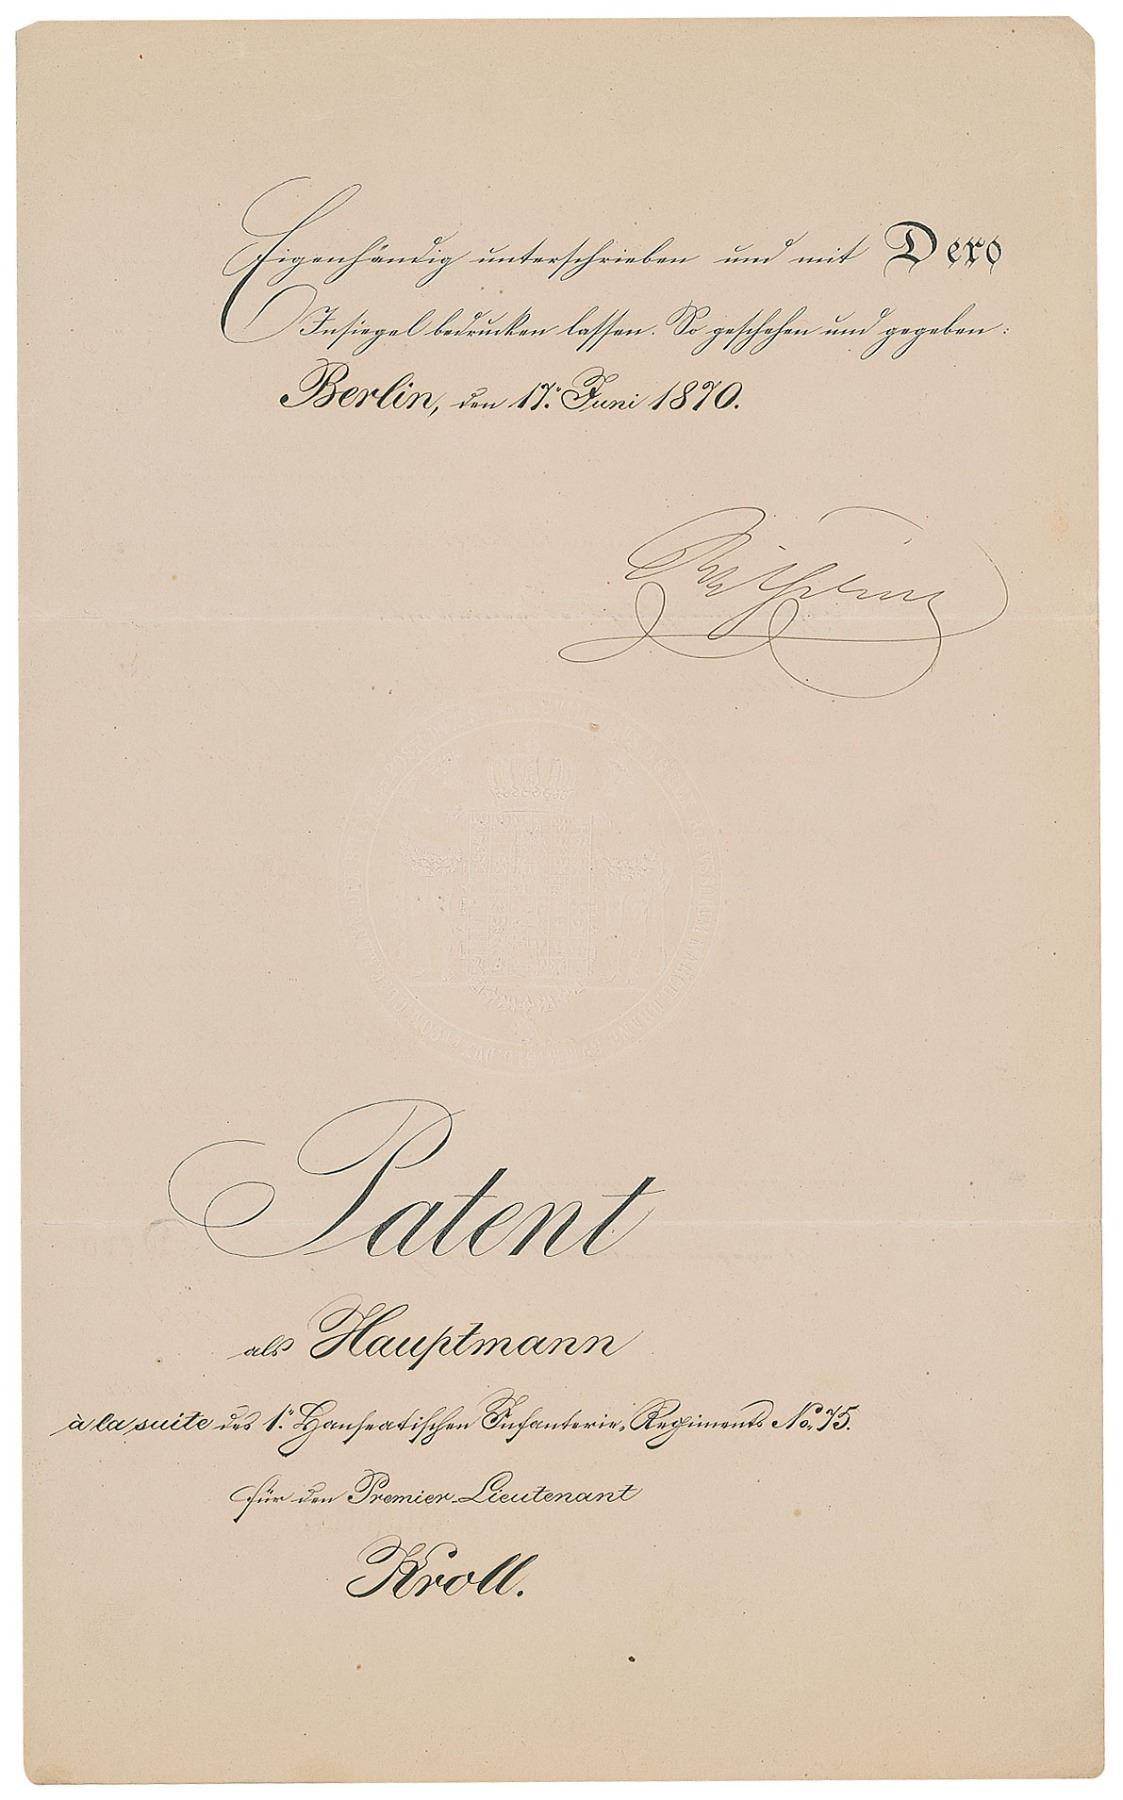 Eigenhändig unterschrieben und mit Dero
Insiegel bedrucken lassen. So geschehen und gegeben:
Berlin, den 17. Juni 1870.
Wilhelm
Patent
als Hauptmann
à la suite des 1. Hanseatischen Infanterie-Regiments No. 75.
für den Premier-Lieutenant
Kroll.